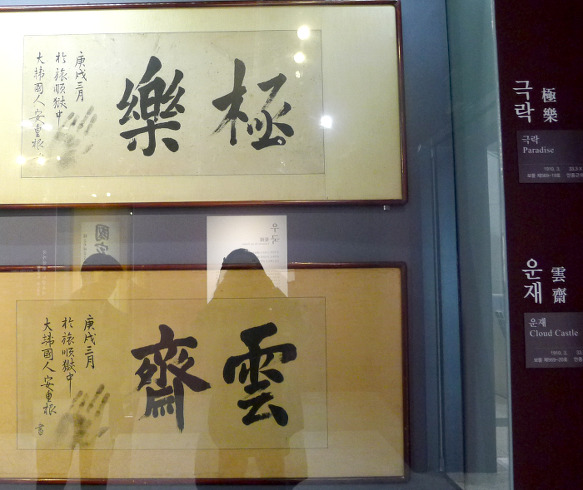 極樂
庚戌三月
於旅順獄中
大韓國人 安重根
國家
우국
극락
極樂
극락
Paradise
雲齋
庚戌三月
於旅順獄中
大韓國人 安重根 書
운재
雲齋
운재
Cloud Castle